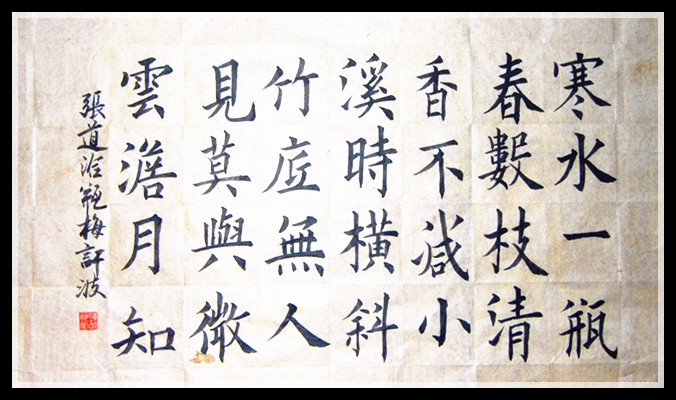 寒水一瓶
春數枝清
香不減小
溪時橫斜
竹底無人
見莫與微
雲澹月知
張道洽瓶梅許波